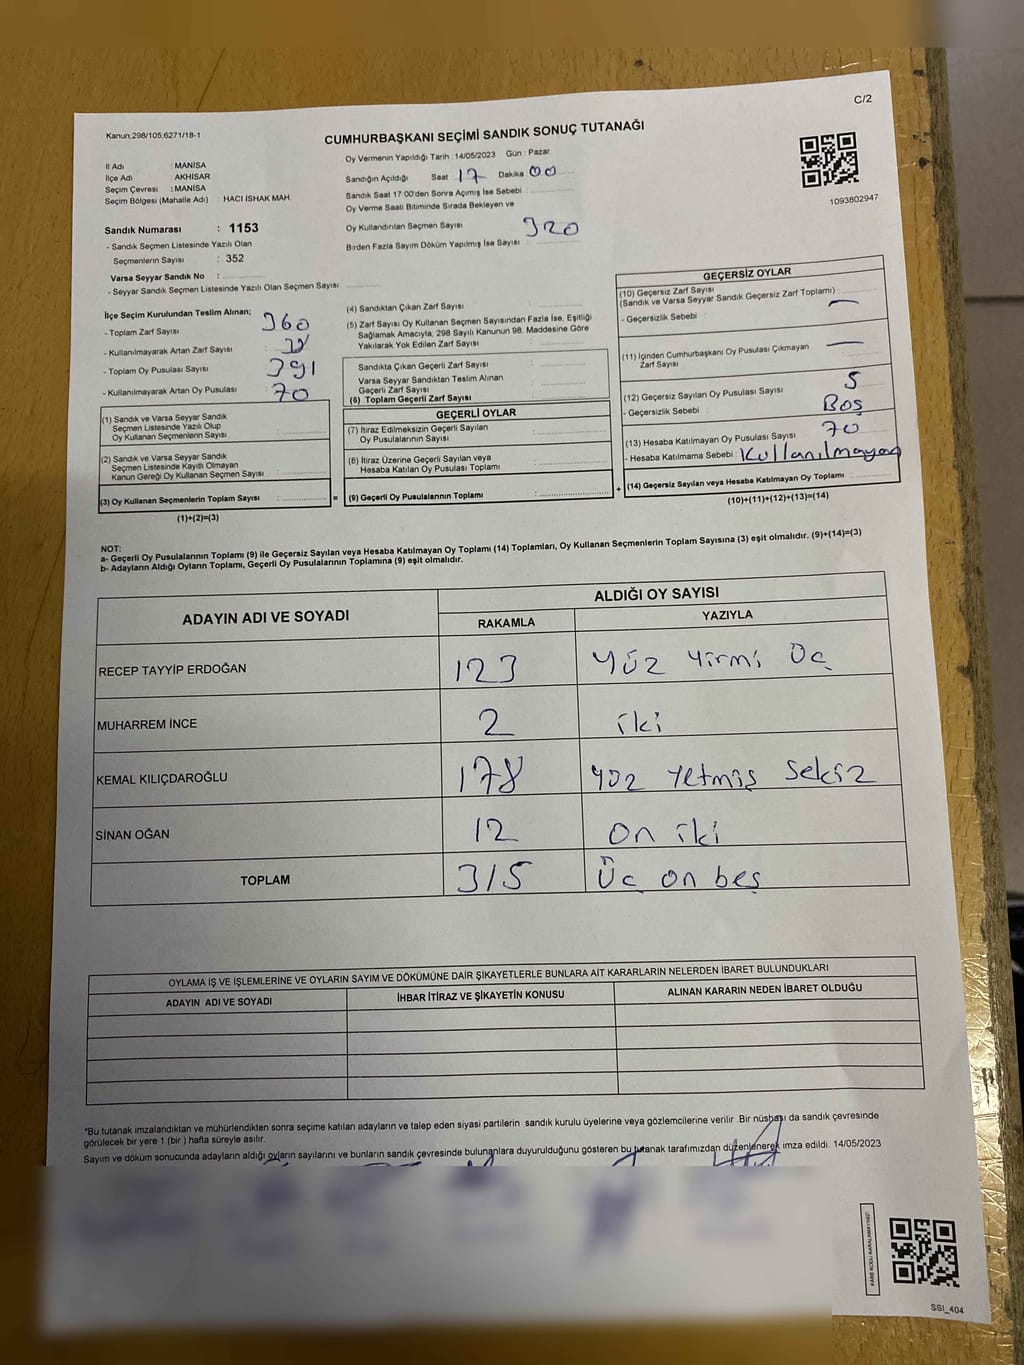 C/2
Kanun:298/105,6271/18-1
CUMHURBAŞKANI SEÇİMİ SANDIK SONUÇ TUTANAĞI
İl Adı : MANİSA
İlçe Adı : AKHİSAR
Seçim Çevresi : MANİSA
Seçim Bölgesi (Mahalle Adı) : HACI İSHAK MAH.
Sandık Numarası : 1153
- Sandık Seçmen Listesinde Yazılı Olan
Seçmenlerin Sayısı : 352
Varsa Seyyar Sandık No :
- Seyyar Sandık Seçmen Listesinde Yazılı Olan Seçmen Sayısı :
Oy Vermenin Yapıldığı Tarih : 14/05/2023 Gün : Pazar
Sandığın Açıldığı Saat 17 Dakika 00
Sandık Saat 17:00'den Sonra Açımış İse Sebebi :
Oy Verme Saati Bitiminde Sırada Bekleyen ve
Oy Kullandırılan Seçmen Sayısı : 320
Birden Fazla Sayım Döküm Yapılmış İse Sayısı :
1093802947
İlçe Seçim Kurulundan Teslim Alınan;
- Toplam Zarf Sayısı : 360
- Kullanılmayarak Artan Zarf Sayısı :
- Toplam Oy Pusulası Sayısı : 391
- Kullanılmayarak Artan Oy Pusulası : 70
(1) Sandık ve Varsa Seyyar Sandık
Seçmen Listesinde Yazılı Olup
Oy Kullanan Seçmenlerin Sayısı :
(2) Sandık ve Varsa Seyyar Sandık
Seçmen Listesinde Kayıtlı Olmayan
Kanun Gereği Oy Kullanan Seçmen Sayısı :
(3) Oy Kullanan Seçmenlerin Toplam Sayısı :
(1)+(2)=(3)
(4) Sandıktan Çıkan Zarf Sayısı :
(5) Zarf Sayısı Oy Kullanan Seçmen Sayısından Fazla İse, Eşitliği
Sağlamak Amacıyla; 298 Sayılı Kanunun 98. Maddesine Göre
Yakılarak Yok Edilen Zarf Sayısı :
Sandıkta Çıkan Geçerli Zarf Sayısı :
Varsa Seyyar Sandıktan Teslim Alınan
Geçerli Zarf Sayısı :
(6) Toplam Geçerli Zarf Sayısı :
GEÇERLİ OYLAR
(7) İtiraz Edilmeksizin Geçerli Sayılan
Oy Pusulalarının Sayısı :
(8) İtiraz Üzerine Geçerli Sayılan veya
Hesaba Katılan Oy Pusulası Toplamı :
= (9) Geçerli Oy Pusulalarının Toplamı :
GEÇERSİZ OYLAR
(10) Geçersiz Zarf Sayısı
(Sandık ve Varsa Seyyar Sandık Geçersiz Zarf Toplamı) :
- Geçersizlik Sebebi : —
(11) İçinden Cumhurbaşkanı Oy Pusulası Çıkmayan
Zarf Sayısı : —
(12) Geçersiz Sayılan Oy Pusulası Sayısı : 5
- Geçersizlik Sebebi : Boş
(13) Hesaba Katılmayan Oy Pusulası Sayısı : 70
- Hesaba Katılmama Sebebi : Kullanılmayan
+ (14) Geçersiz Sayılan veya Hesaba Katılmayan Oy Toplamı :
(10)+(11)+(12)+(13)=(14)
NOT:
a- Geçerli Oy Pusulalarının Toplamı (9) ile Geçersiz Sayılan veya Hesaba Katılmayan Oy Toplamı (14) Toplamları, Oy Kullanan Seçmenlerin Toplam Sayısına (3) eşit olmalıdır. (9)+(14)=(3)
b- Adayların Aldığı Oyların Toplamı, Geçerli Oy Pusulalarının Toplamına (9) eşit olmalıdır.
ADAYIN ADI VE SOYADI
ALDIĞI OY SAYISI
RAKAMLA YAZIYLA
RECEP TAYYİP ERDOĞAN 123 Yüz Yirmi Üç
MUHARREM İNCE 2 iki
KEMAL KILIÇDAROĞLU 178 Yüz Yetmiş Sekiz
SİNAN OĞAN 12 On iki
TOPLAM 315 Üç on beş
OYLAMA İŞ VE İŞLEMLERİNE VE OYLARIN SAYIM VE DÖKÜMÜNE DAİR ŞİKAYETLERLE BUNLARA AİT KARARLARIN NELERDEN İBARET BULUNDUKLARI
ADAYIN ADI VE SOYADI İHBAR İTİRAZ VE ŞİKAYETİN KONUSU ALINAN KARARIN NEDEN İBARET OLDUĞU
*Bu tutanak imzalandıktan ve mühürlendikten sonra seçime katılan adayların ve talep eden siyasi partilerin sandık kurulu üyelerine veya gözlemcilerine verilir. Bir nüshası da sandık çevresinde
görülecek bir yere 1 (bir) hafta süreyle asılır.
Sayım ve döküm sonucunda adayların aldığı oyların sayılarını ve bunların sandık çevresinde bulunanlara duyurulduğunu gösteren bu tutanak tarafımızdan düzenlenerek imza edildi. 14/05/2023
KARE KODU KARALAMAYINIZ!
SSI_404